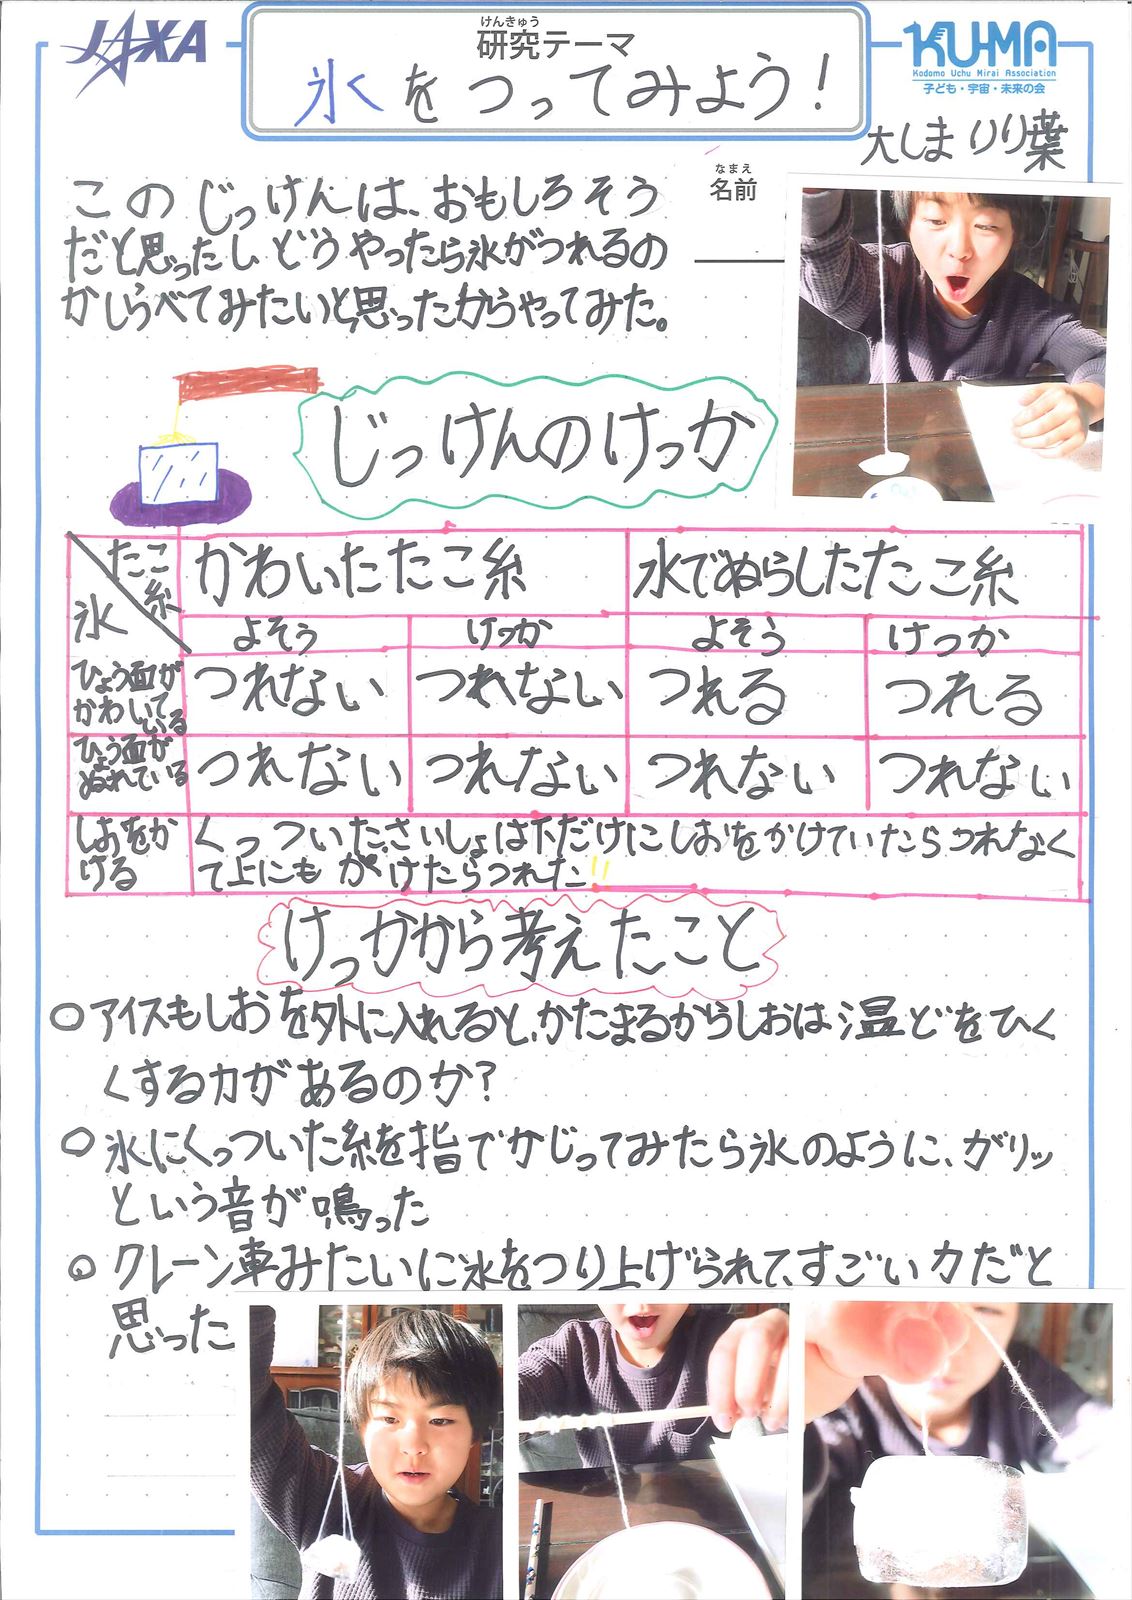 JAXA
けんきゅう
研究テーマ
氷をつってみよう！
KU-MA
Kodomo Uchu Mirai Association
子ども・宇宙・未来の会
なまえ
名前
大しまりり葉
このじっけんは、おもしろそう
だと思ったし どうやったら氷がつれるの
かしらべてみたいと思ったからやってみた。
じっけんのけっか
たこ糸
氷
かわいたたこ糸
水でぬらしたたこ糸
よそう
けっか
よそう
けっか
ひょう面が
かわいて
いる
つれない
つれない
つれる
つれる
ひょう面が
ぬれている
つれない
つれない
つれない
つれない
しおをか
ける
くっついた。さいしょは下だけにしおをかけていたらつれなく
て上にもかけたらつれた!!
けっかから考えたこと
○アイスもしおを外に入れると、かたまるからしおは温どをひく
くする力があるのか?
○氷にくっついた糸を指でかじってみたら氷のように、ガリッ
という音が鳴った
○クレーン車みたいに氷をつり上げられて、すごい力だと
思った